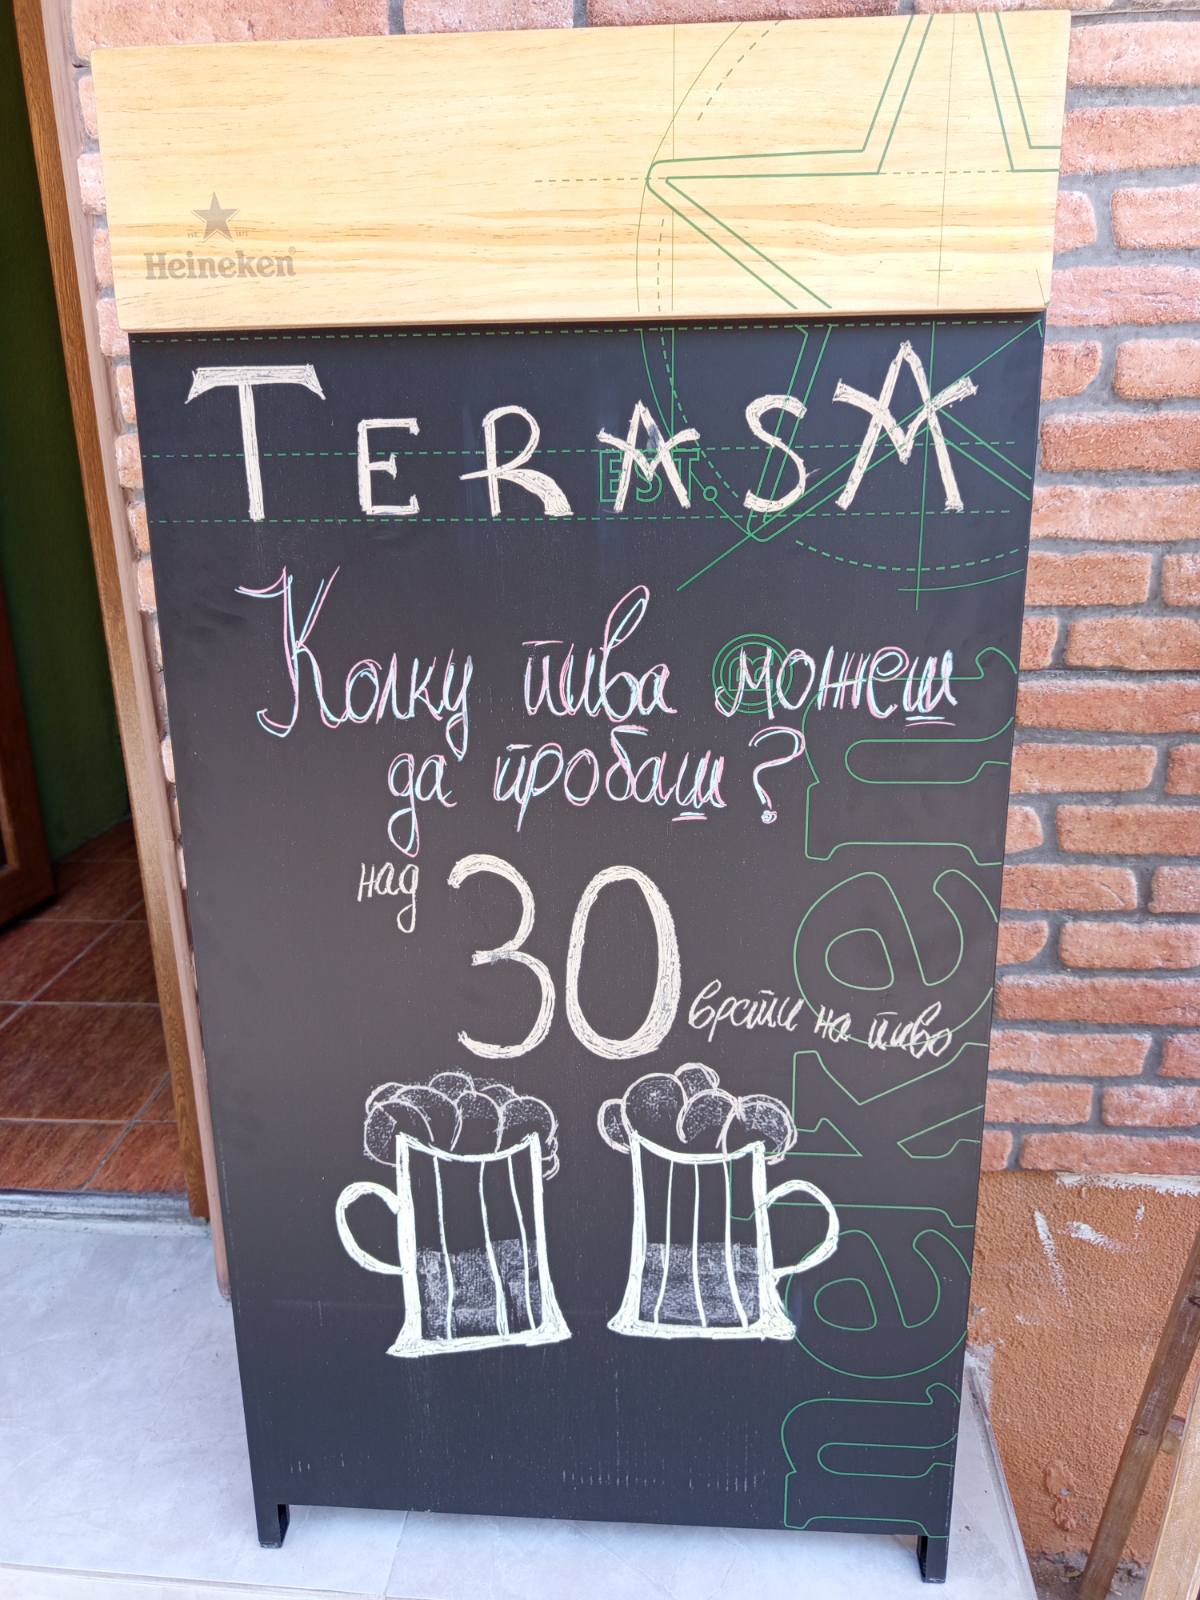 Heineken
TERASA
EST.
Колку пива можеш
да пробаш?
над 30 врсти на пиво
neken